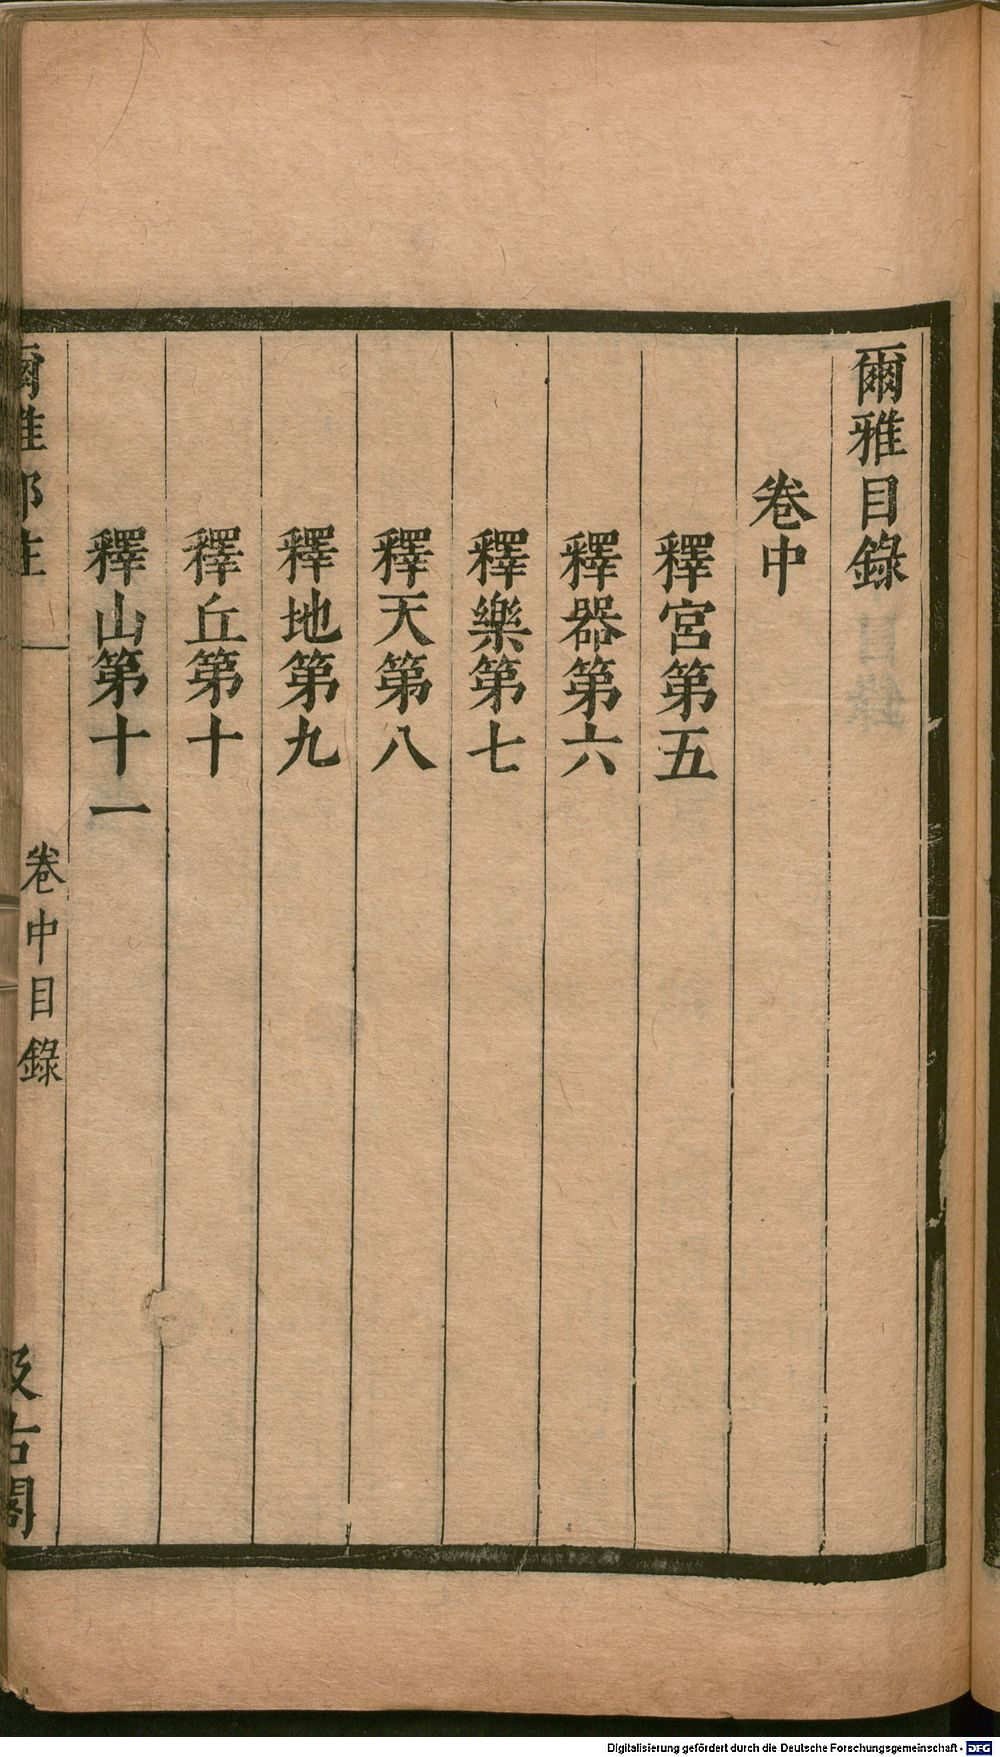 爾雅目錄
卷中
釋宮第五
釋器第六
釋樂第七
釋天第八
釋地第九
釋丘第十
釋山第十一
爾雅郭注 卷中目錄 汲古閣
Digitalisierung gefördert durch die Deutsche Forschungsgemeinschaft - DFG